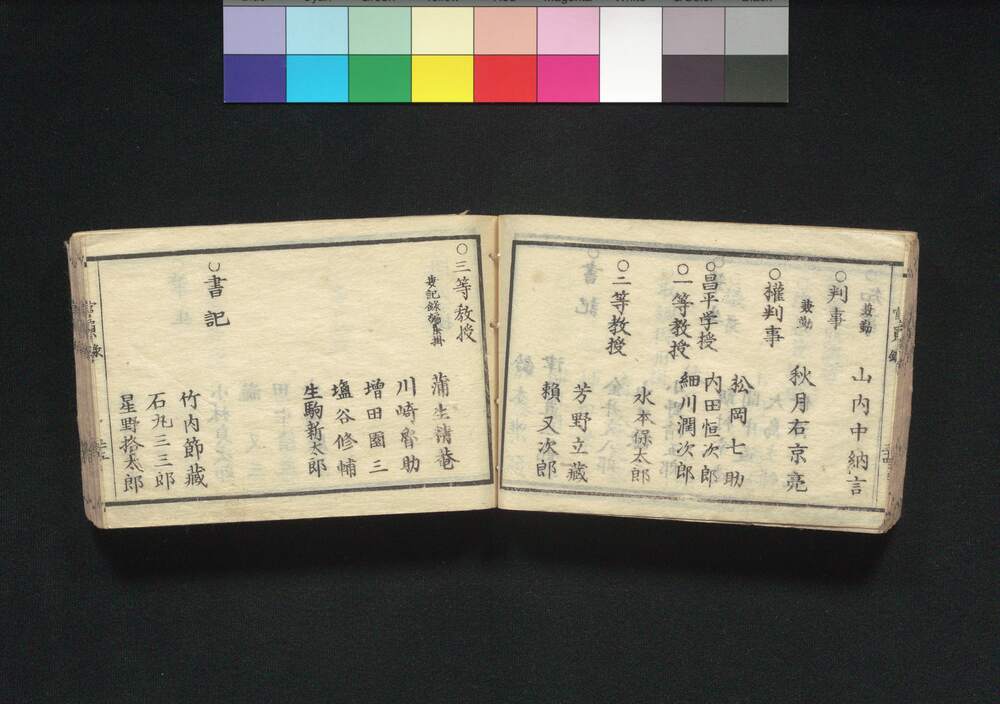 Cyan
Green
Yellow
Red
Magenta
White
Black
官員録
○判事
兼勤
山内中納言
○權判事
兼勤
秋月右京亮
松岡七助
○昌平学授
内田恒次郎
○一等教授
細川潤次郎
水本保太郎
○二等教授
芳野立蔵
頼又次郎
○三等教授
兼記録編集輯
蒲生済菴
川崎魯助
増田圉三
塩谷修輔
生駒新太郎
○書記
竹内節蔵
石丸三三郎
星野拾太郎
官員録